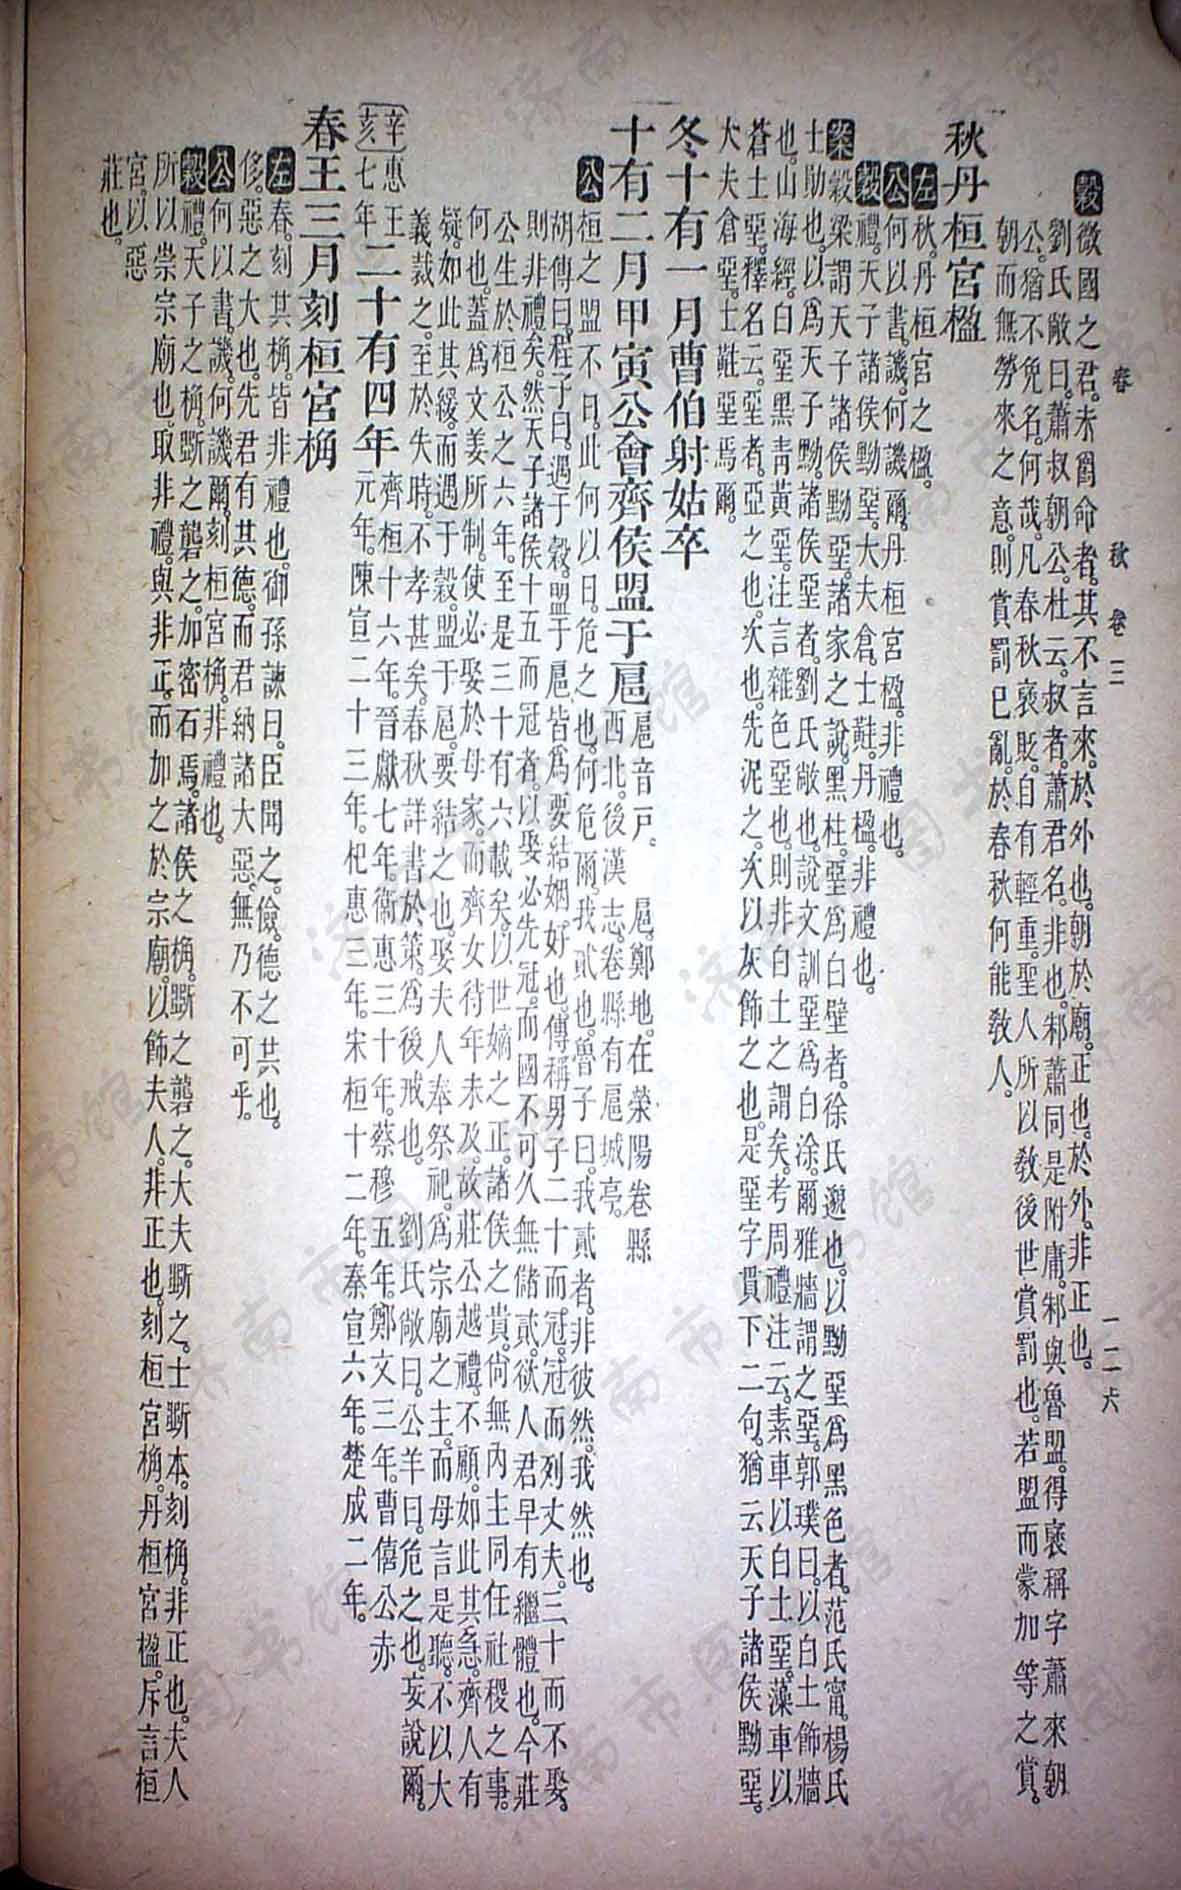 春　秋　卷三　一二六
穀微國之君。未爵命者。其不言來。於外也。朝於廟。正也。於外。非正也。
劉氏敞曰。蕭叔朝公。杜云。叔者。蕭君名。非也。邾蕭同是附庸。邾與魯盟。得褒稱字。蕭來朝
公。猶不免名。何哉。凡春秋褒貶。自有輕重。聖人所以教後世賞罰也。若盟而蒙加等之賞。
朝而無勞來之意。則賞罰已亂。於春秋何能教人。
秋丹桓宮楹
左秋。丹桓宮之楹。
公何以書。譏。何譏爾。丹桓宮楹。非禮也。
穀禮。天子諸侯黝堊。大夫倉。士黈。丹楹。非禮也。
案穀梁謂天子諸侯黝堊。諸家之說。黑柱。堊爲白壁者。徐氏邈也。以黝堊爲黑色者。范氏甯。楊氏
士勛也。以爲天子黝。諸侯堊者。劉氏敞也。說文訓堊爲白涂。爾雅牆謂之堊。郭璞曰。以白土飾牆
也。山海經。白堊黑青黃堊。注言雜色堊也。則非白土之謂矣。考周禮注云。素車以白土堊。藻車以
蒼土堊。釋名云。堊者。亞之也。次也。先泥之。次以灰飾之也。是堊字貫下二句。猶云天子諸侯黝堊。
大夫倉堊。士黈堊焉爾。
冬十有一月曹伯射姑卒
十有二月甲寅公會齊侯盟于扈扈音戸。　扈。鄭地。在滎陽卷縣
西北。後漢志。卷縣有扈城亭。
公桓之盟不日。此何以日。危之也。何危爾。我貳也。魯子曰。我貳者。非彼然。我然也。
胡傳曰。程子曰。遇于穀。盟于扈。皆爲要結姻好也。傳稱男子二十而冠。冠而列丈夫。三十而不娶。
則非禮矣。然天子諸侯十五而冠者。以娶必先冠。而國不可久無儲貳。欲人君早有繼體也。今莊
公生於桓公之六年。至是三十有六載矣。以世嫡之正。諸侯之貴。尚無內主同任社稷之事。
何也。蓋爲文姜所制。使必娶於母家。而齊女待年未及。故莊公越禮不顧。如此其急。齊人有
疑。如此其緩。而遇于穀。盟于扈。要結之也。娶夫人奉祭祀。爲宗廟之主。而母言是聽。不以大
義裁之。至於失時。不孝甚矣。春秋詳書於策。爲後戒也。　劉氏敞曰。公羊曰。危之也。妄說爾。
辛亥惠王七年二十有四年齊桓十六年。晉獻七年。衛惠三十年。蔡穆五年。鄭文三年。曹僖公赤
元年。陳宣二十三年。杞惠三年。宋桓十二年。秦宣六年。楚成二年。
春王三月刻桓宮桷
左春。刻其桷。皆非禮也。御孫諫曰。臣聞之。儉。德之共也。
侈。惡之大也。先君有共德。而君納諸大惡。無乃不可乎。
公何以書。譏。何譏爾。刻桓宮桷。非禮也。
穀禮。天子之桷。斲之礱之。加密石焉。諸侯之桷。斲之礱之。大夫斲之。士斲本。刻桷。非正也。夫人
所以崇宗廟也。取非禮。與非正。而加之於宗廟。以飾夫人。非正也。刻桓宮桷。丹桓宮楹。斥言桓
宮。以惡
莊也。